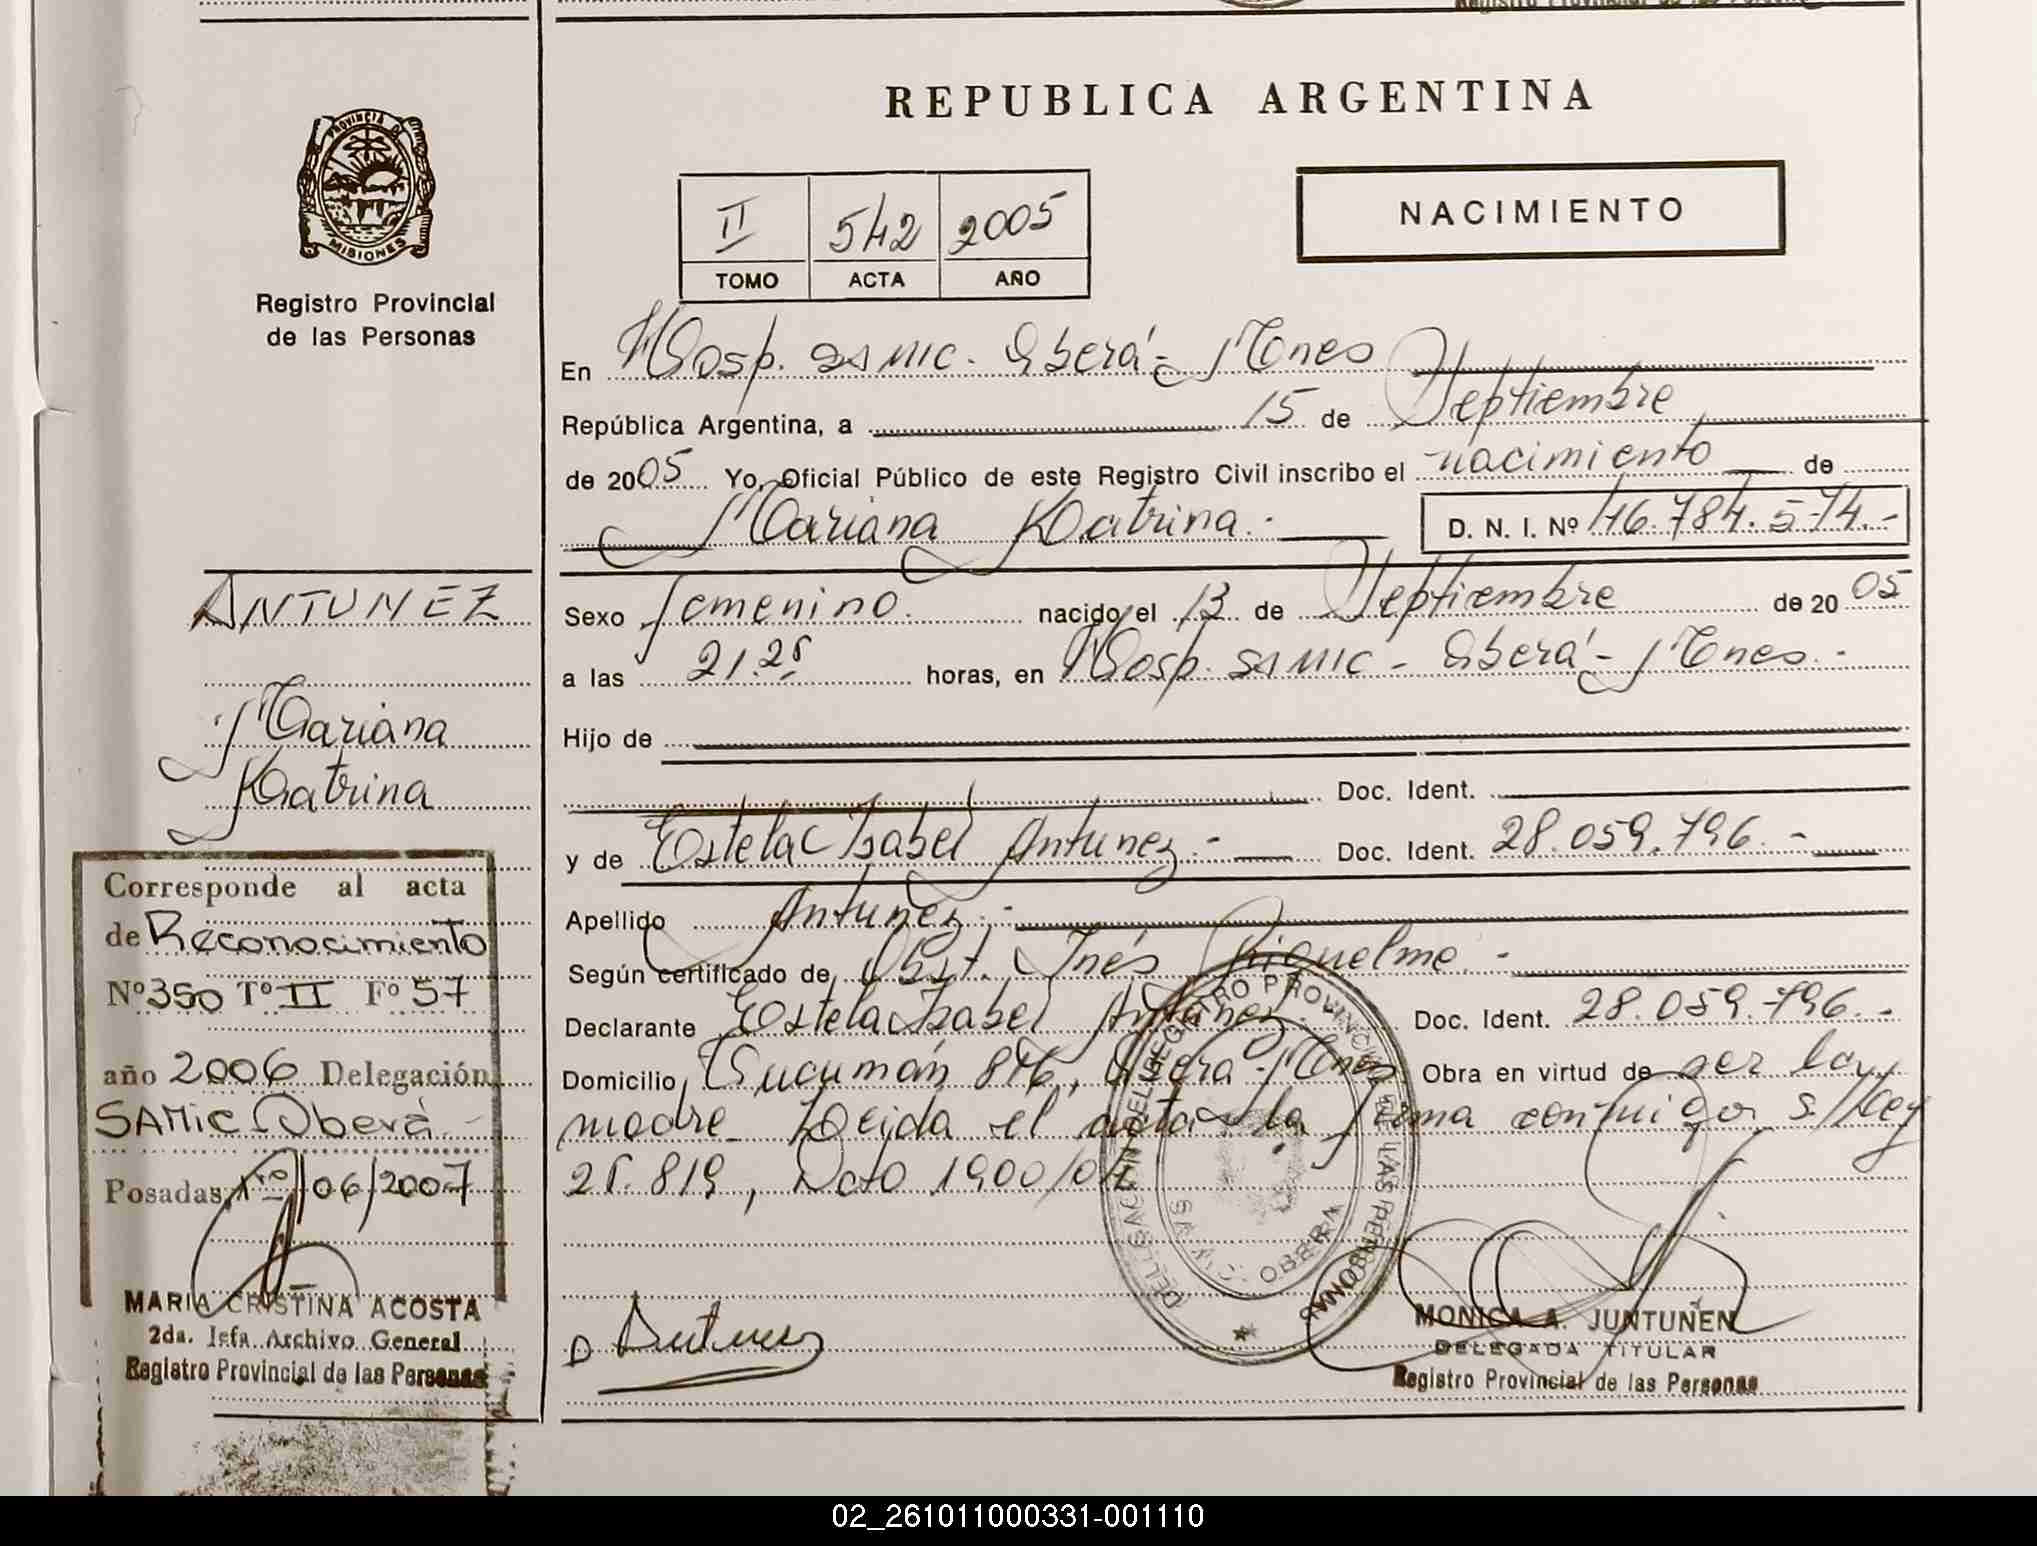 REPUBLICA ARGENTINA
PROVINCIA D MISIONES
Registro Provincial
de las Personas
II 542 2005
TOMO ACTA AÑO
NACIMIENTO
En Hosp. SAMIC. Oberá - Mnes
República Argentina, a 15 de Septiembre
de 2005 Yo, Oficial Público de este Registro Civil inscribo el nacimiento de
Mariana Katrina.- D. N. I. Nº 46.784.574.-
Sexo femenino. nacido el 13 de Septiembre de 2005
a las 21.25 horas, en Hosp. SAMIC - Oberá - Mnes.-
Hijo de
Doc. Ident.
y de Estela Isabel Antunez.- Doc. Ident. 28.059.796.-
Apellido Antunez.-
Según certificado de Obst. Inés Riquelme.-
Declarante Estela Isabel Antunez. Doc. Ident. 28.059.796.-
Domicilio Tucumán 846, Oberá - Mnes Obra en virtud de ser la
madre. Leída el acta la firma conmigo s/ Ley
25.819, Dcto 1900/04
ANTUNEZ
Mariana
Katrina
Corresponde al acta
de Reconocimiento
Nº 350 Tº II Fº 57
año 2006 Delegación
SAMIC Oberá.-
Posadas, 1ro/06/2007
MARIA CRISTINA ACOSTA
2da. Jefa Archivo General
Registro Provincial de las Personas
DELEGACION DEL REGISTRO PROVINCIAL DE LAS PERSONAS
S.A.M.I.C. OBERA
Antunez
MONICA A. JUNTUNEN
DELEGADA TITULAR
Registro Provincial de las Personas
02_261011000331-001110